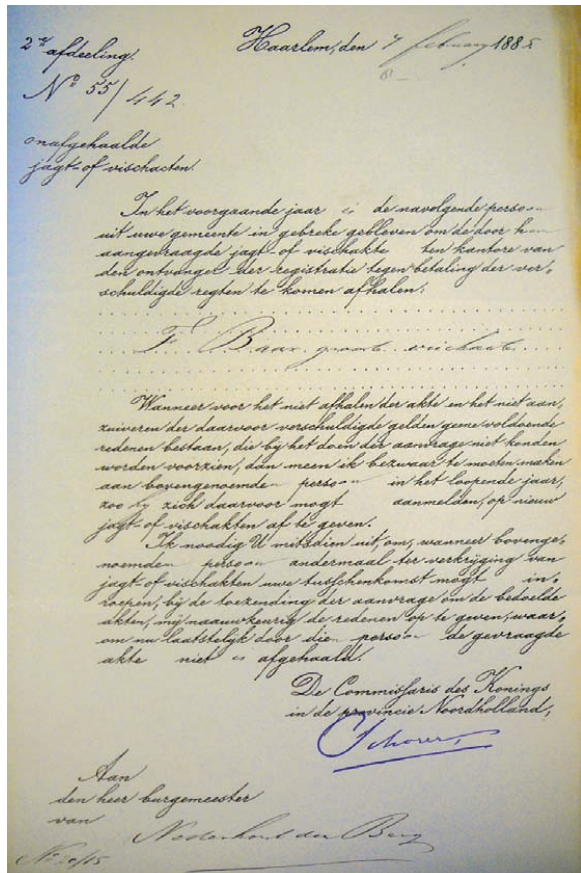 2de afdeeling.
Haarlem, den 7 february 1885
No 55/442
onafgehaalde
jagt- of vischacten.
In het voorgaande jaar is de navolgende persoon
uit uwe gemeente in gebreke gebleven om de door hem
aangevraagde jagt- of vischakte ten kantore van
den ontvanger der registratie tegen betaling der ver-
schuldigde regten te komen afhalen:
F. Baar groote vischacte
Wanneer voor het niet afhalen der akte en het niet aan-
zuiveren der daarvoor verschuldigde gelden geene voldoende
redenen bestaan, die bij het doen der aanvrage niet konden
worden voorzien, dan meen ik bezwaar te moeten maken
aan bovengenoemden persoon in het loopende jaar,
zoo hij zich daarvoor mogt aanmelden, op nieuw
jagt- of vischakten af te geven.
Ik noodig U mitsdien uit, om, wanneer bovenge-
noemden persoon andermaal ter verkrijging van
jagt- of vischakten uwe tusschenkomst mogt in-
roepen, bij de toezending der aanvrage om de bedoelde
akten, mij naauwkeurig de redenen op te geven, waar-
om nu laatstelijk door dien persoon de gevraagde
akte niet is afgehaald.
De Commissaris des Konings
in de provincie Noordholland,
Schorer
Aan
den heer burgemeester
van Nederhorst den Berg
No 20/15